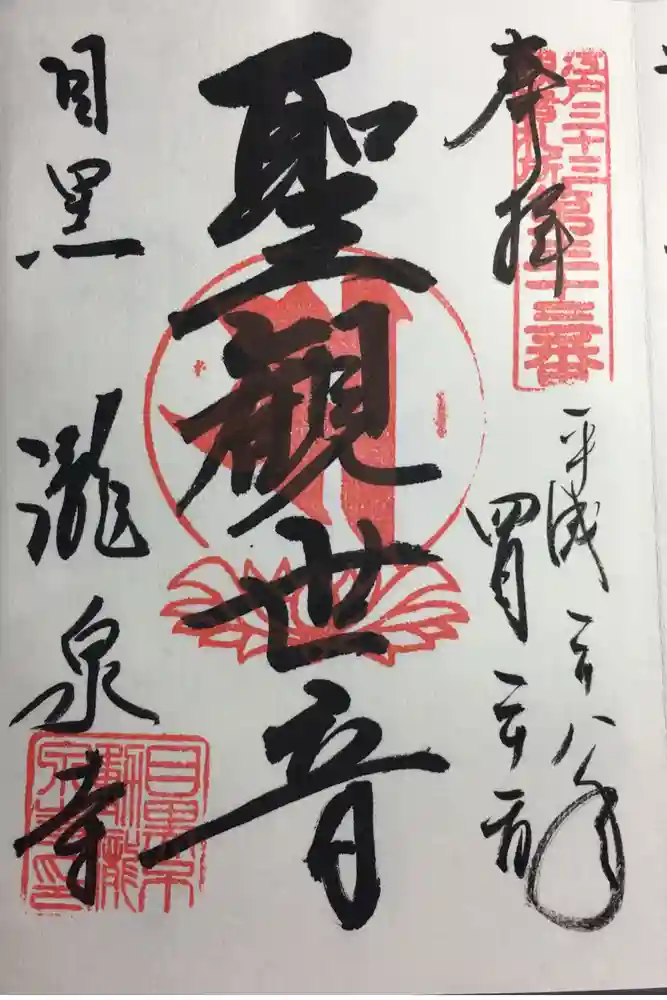 奉拝
江戸三十三観音札所第三十三番
平成二十八年
四月二十二日
聖観世音
目黒 瀧泉寺
目黒不動瀧泉寺印